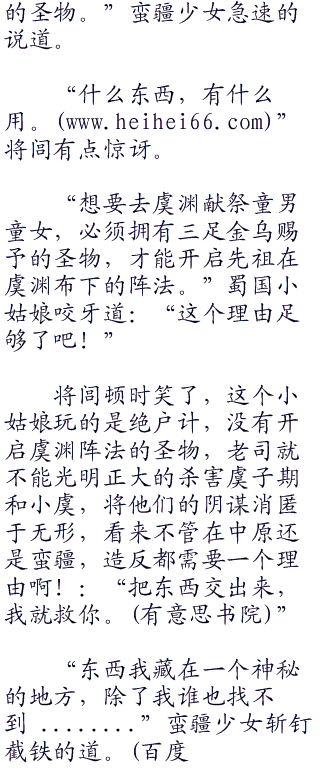 的圣物。”蛮疆少女急速的
说道。
“什么东西，有什么
用。(www.heihei66.com)”
将闾有点惊讶。
“想要去虞渊献祭童男
童女，必须拥有三足金乌赐
予的圣物，才能开启先祖在
虞渊布下的阵法。”蜀国小
姑娘咬牙道：“这个理由足
够了吧！”
将闾顿时笑了，这个小
姑娘玩的是绝户计，没有开
启虞渊阵法的圣物，老司就
不能光明正大的杀害虞子期
和小虞，将他们的阴谋消匿
于无形，看来不管在中原还
是蛮疆，造反都需要一个理
由啊！：“把东西交出来，
我就救你。(有意思书院)”
“东西我藏在一个神秘
的地方，除了我谁也找不
到 ........”蛮疆少女斩钉
截铁的道。(百度